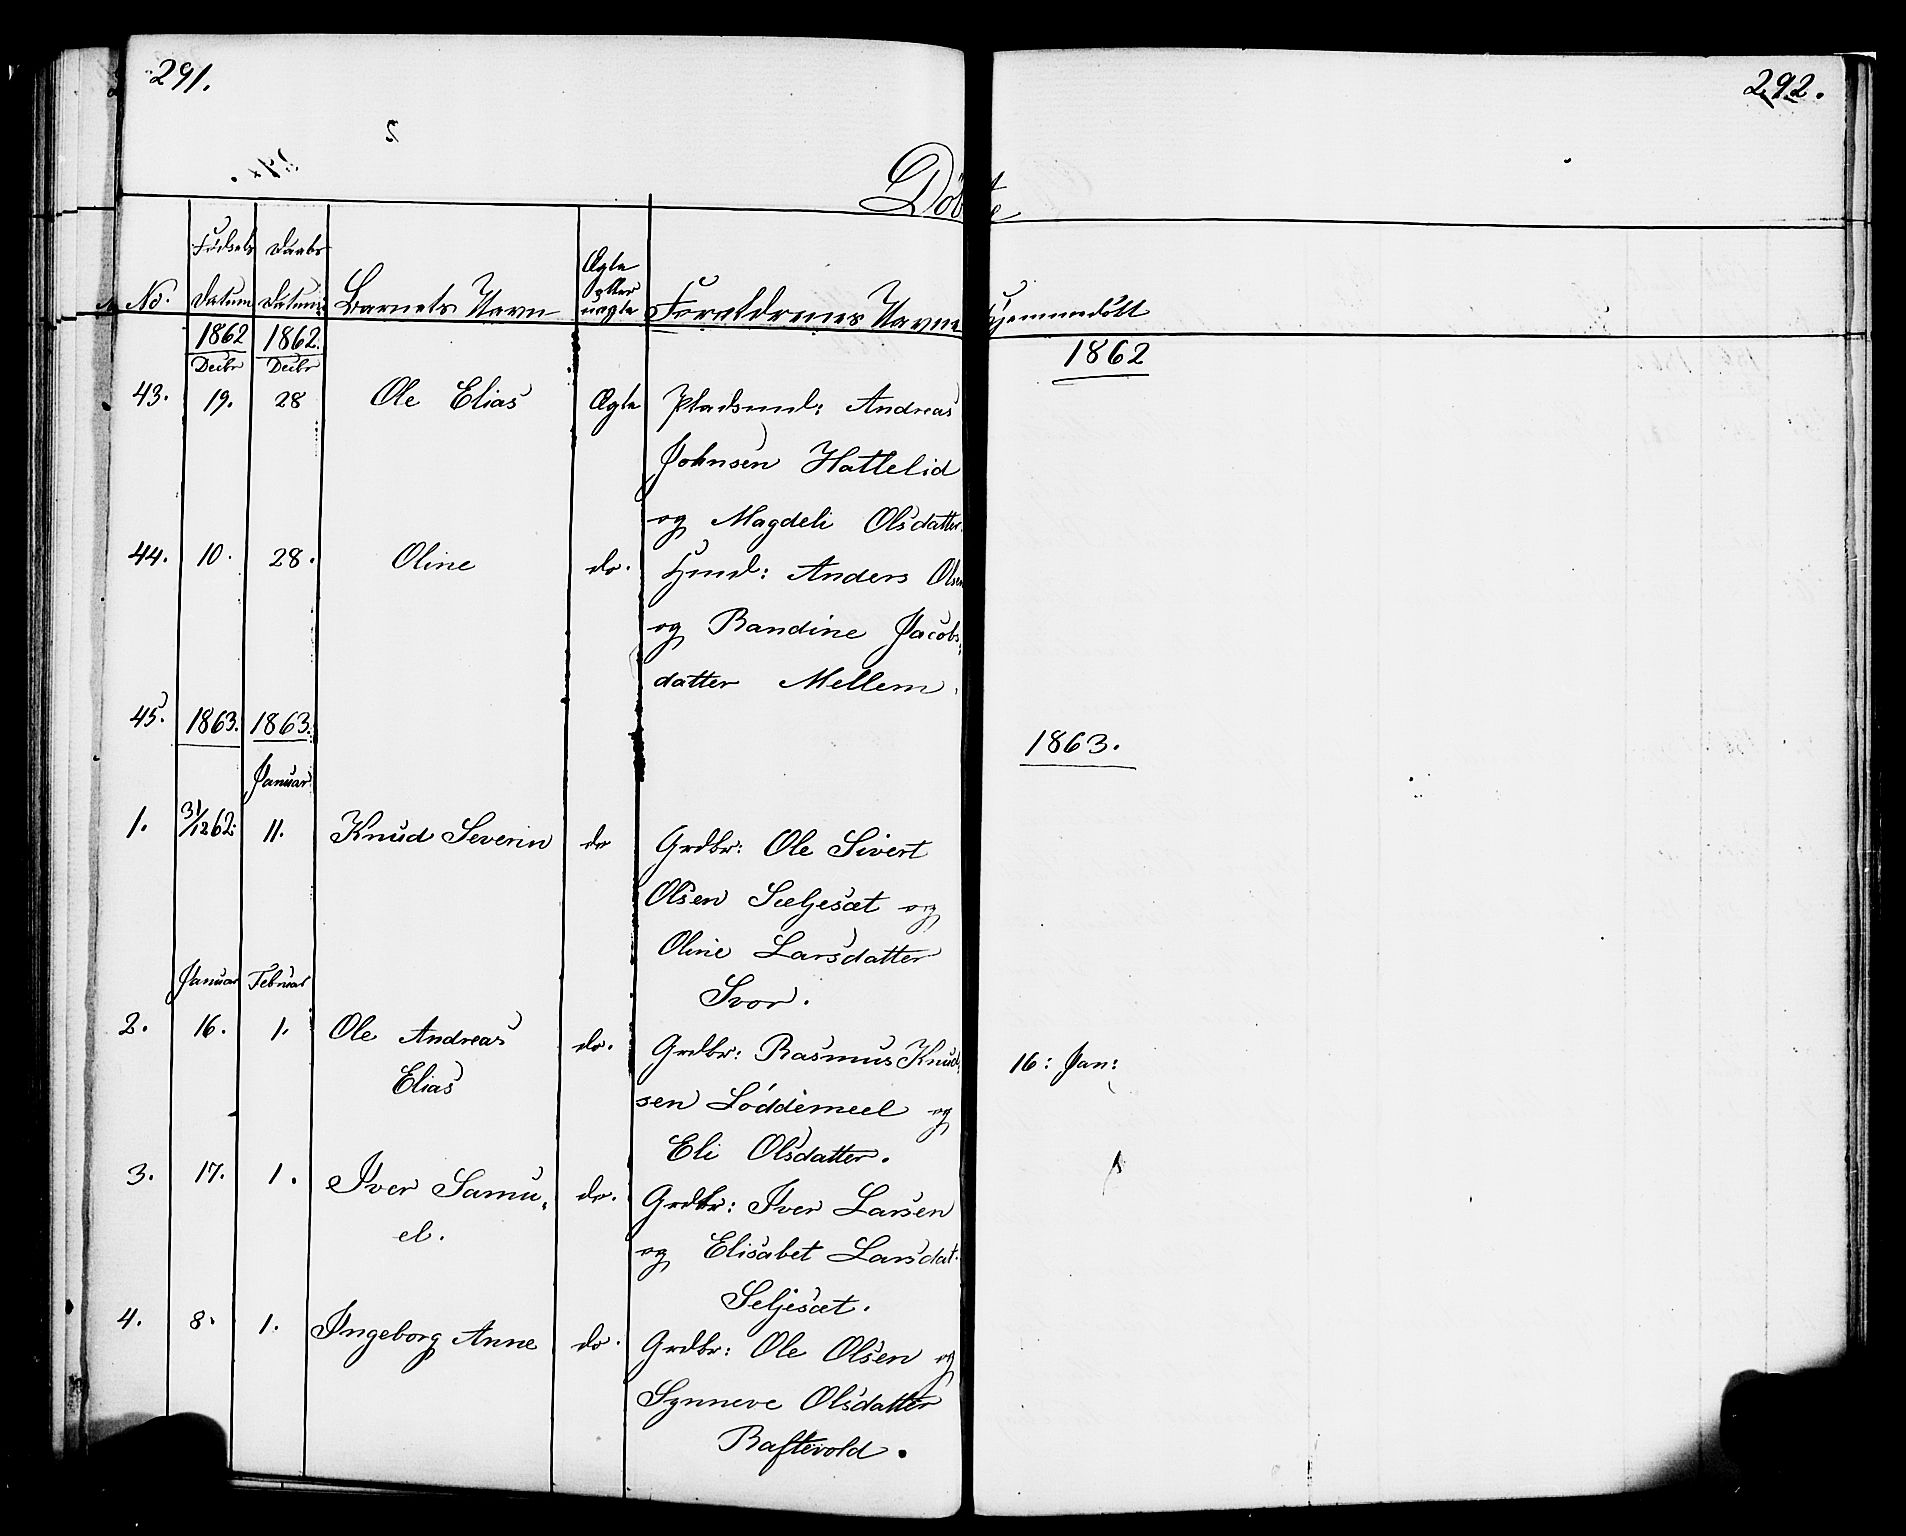 291.
292.
Döbte
No.
Födsels Datum
Daabs Datum
Barnets Navn
Ægte eller uægte
Forældrenes Navne
Hjemmedöbt
1862 1862. 1862
Decbr Decbr
43. 19. 28 Ole Elias Ægte Pladsmd: Andreas
Johnsen Hattelid
og Magdeli Olsdatter.
44. 10. 28. Oline do. Hmd: Anders Olsen
og Randine Jacobs,
datter Mellem.
45. 1863. 1863. 1863.
Januar
1. 31/12 62. 11. Knud Severin do Grdbr: Ole Sivert
Olsen Sæljesæt og
Oline Larsdatter
Svor.
Januar Februar
2. 16. 1. Ole Andreas do. Grdbr: Rasmus Knud, 16: Jan:
Elias sen Löddemeel og
Eli Olsdatter.
3. 17. 1. Iver Samu, do. Grdbr: Iver Larsen
el. og Elisabet Larsdat.
Seljesæt.
4. 8. 1. Ingeborg Anne do. Grdbr: Ole Olsen og
Synneve Olsdatter
Raftevold.